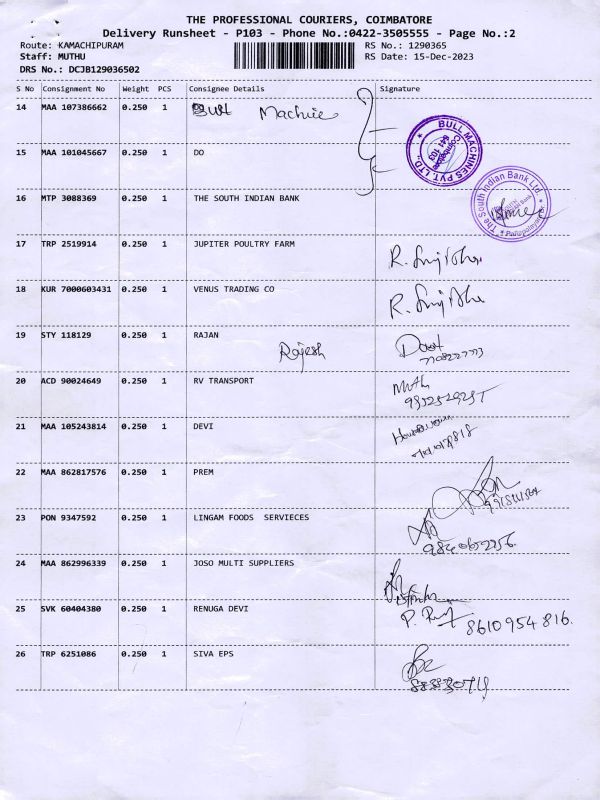 THE PROFESSIONAL COURIERS, COIMBATORE
Delivery Runsheet - P103 - Phone No.:0422-3505555 - Page No.:2
Route: KAMACHIPURAM RS No.: 1290365
Staff: MUTHU RS Date: 15-Dec-2023
DRS No.: DCJB129036502
S No Consignment No Weight PCS Consignee Details Signature
14 MAA 107386662 0.250 1 Machine
BULL MACHINES PVT LTD., Coimbatore 641 103
15 MAA 101045667 0.250 1 DO
16 MTP 3088369 0.250 1 THE SOUTH INDIAN BANK
The South Indian Bank Ltd.
17 TRP 2519914 0.250 1 JUPITER POULTRY FARM
18 KUR 7000603431 0.250 1 VENUS TRADING CO
19 STY 118129 0.250 1 RAJAN
Rajesh
20 ACD 90024649 0.250 1 RV TRANSPORT
21 MAA 105243814 0.250 1 DEVI
22 MAA 862817576 0.250 1 PREM
23 PON 9347592 0.250 1 LINGAM FOODS SERVIECES
24 MAA 862996339 0.250 1 JOSO MULTI SUPPLIERS
25 SVK 60404380 0.250 1 RENUGA DEVI
8610954816.
26 TRP 6251086 0.250 1 SIVA EPS